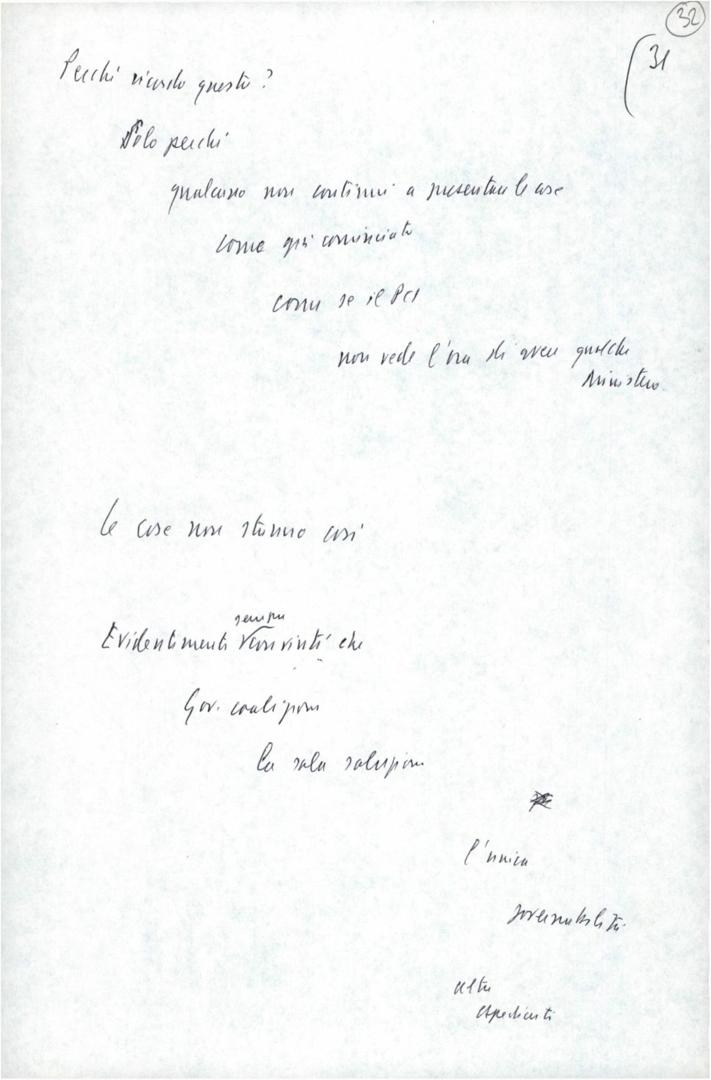 32
31
Perché ricordo questo?
Solo perché
qualcuno non continui a presentare le cose
come già cominciato
come se il PCI
non vede l'ora di avere qualche
Ministero
Le cose non stanno così
sempre
Evidentemente convinti che
Gov. coalizione
la sola soluzione
l'unica
governabilità
altri
espedienti